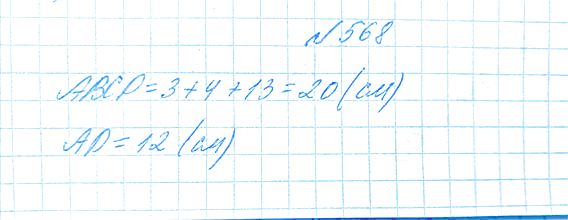 №568
ABCD=3+4+13=20(см)
AD=12(см)